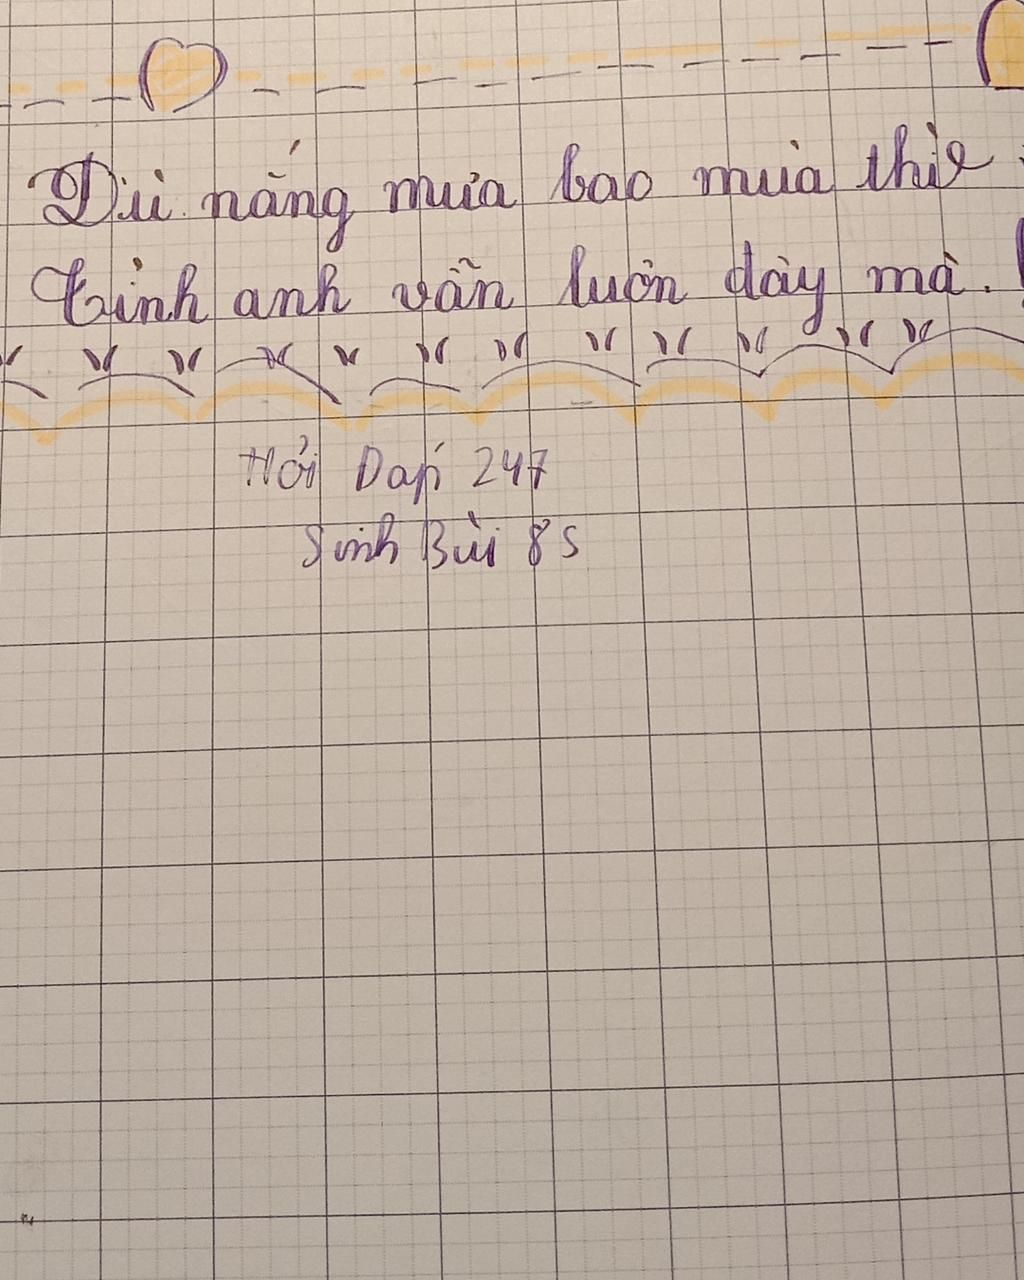 Dù nắng mưa bao mùa thì
tình anh vẫn luôn đây mà.
Hỏi Đáp 247
Sinh Bùi 8s